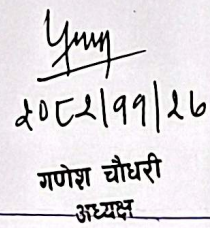 २०८२|११|२७
गणेश चौधरी
अध्यक्ष